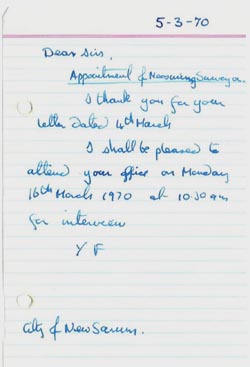 5-3-70
Dear Sirs,
Appointment of Measuring Surveyor.
I thank you for your
letter dated 4th March
I shall be pleased to
attend your office on Monday
16th March 1970 at 10.30 am
for interview
Y F
City of New Sarum.